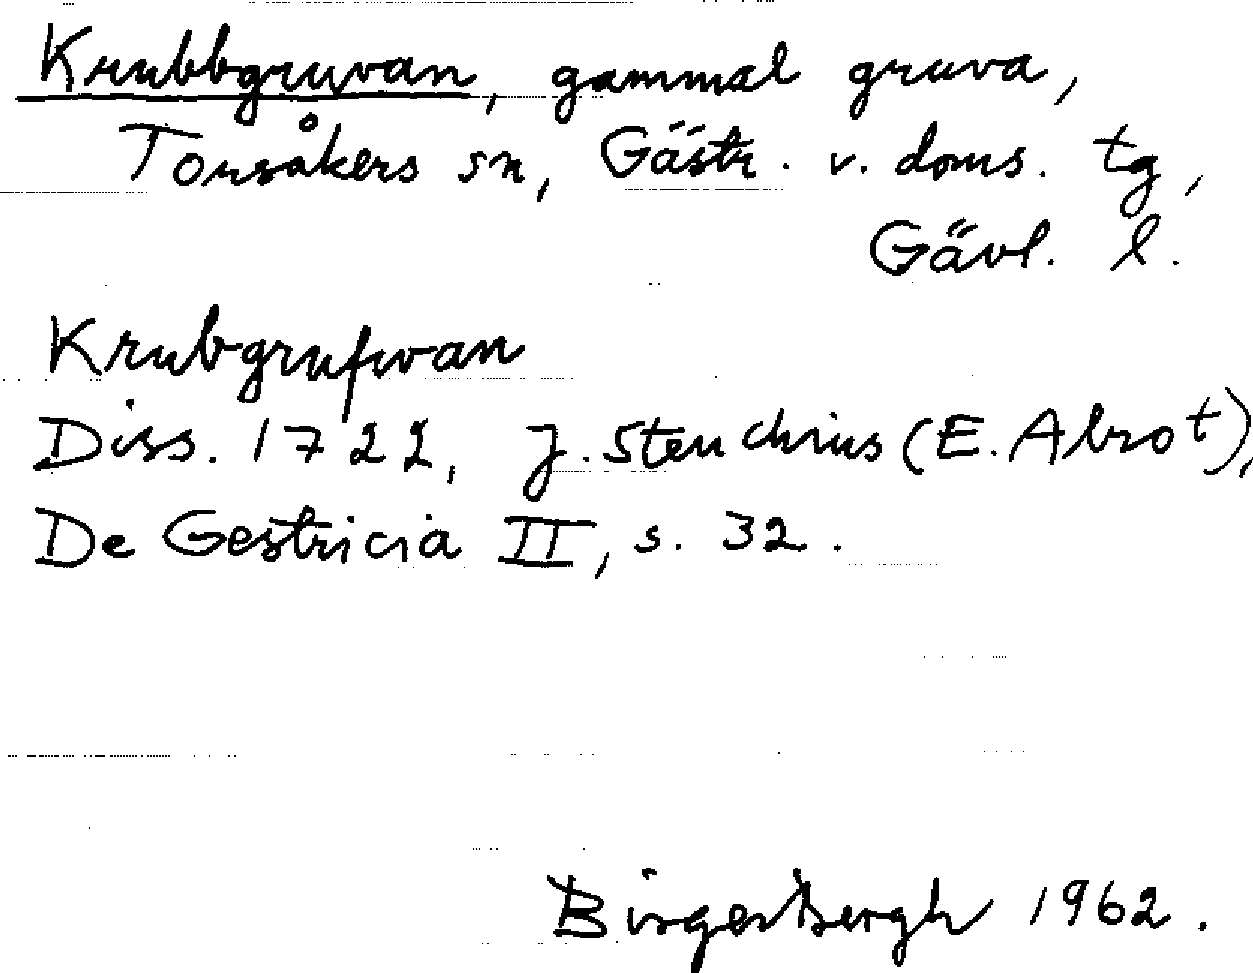 Krubbgruvan, gammal gruva,
Torsåkers sn, Gästr. v. doms. tg,
Gävl. l.
Krubgrufwan
Diss. 1722, J. Steuchius (E. Abrot),
De Gestricia II, s. 32.
Birger Bergh 1962.